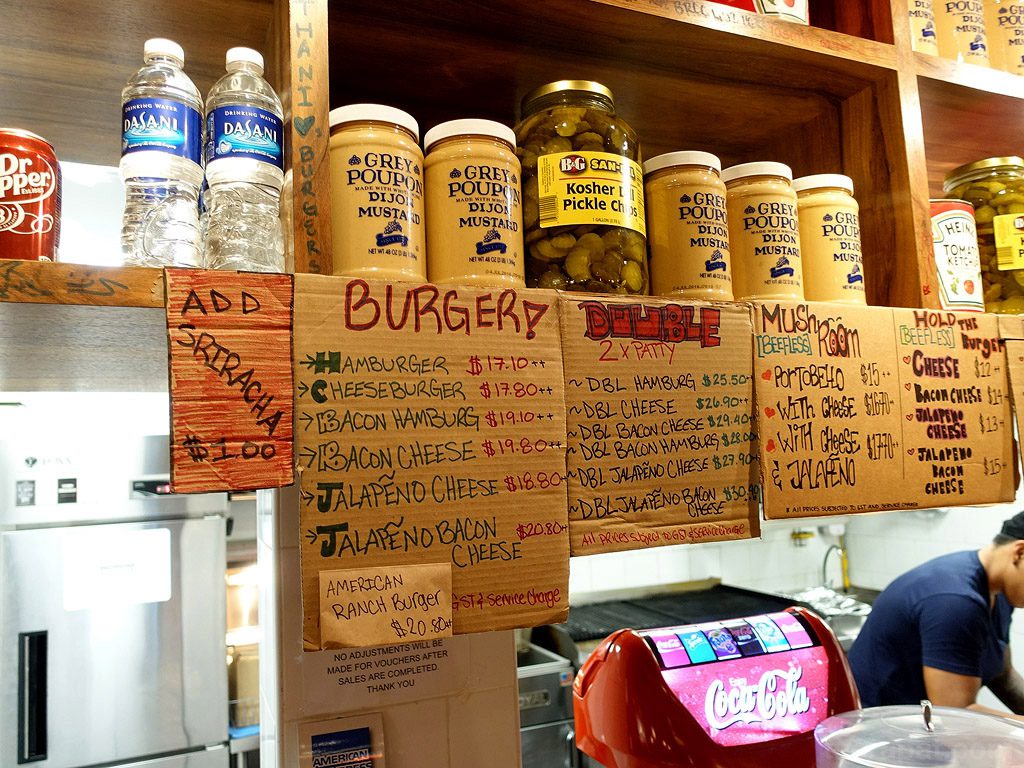 Dr
Pepper
DRINKING WATER
DASANI
DRINKING WATER
DASANI
THANI BURGERS
GREY
POUPON
MADE WITH WHITE
DIJON
MUSTARD
NET WT 48 OZ (3 LB)
GREY
POUPON
DIJON
MUSTARD
NET WT 48 OZ (3 LB)
B&G SAN-
Kosher
Pickle Chips
1 GALLON
GREY
POUPON
DIJON
MUSTARD
GREY
POUPON
DIJON
MUSTARD
GREY
POUPON
DIJON
MUSTARD
HEINZ
TOMATO
ADD
SRIRACHA
$1.00
BURGER!
→HAMBURGER $17.10++
→CHEESEBURGER $17.80++
→BACON HAMBURG $19.10++
→BACON CHEESE $19.80++
→JALAPEÑO CHEESE $18.80++
→JALAPEÑO BACON $20.80++
CHEESE
AMERICAN
RANCH Burger
$20.80++
GST & Service Charge
DOUBLE
2 X PATTY
~DBL HAMBURG $25.50++
~DBL CHEESE $26.90++
~DBL BACON CHEESE $29.40++
~DBL BACON HAMBURG $28.00
~DBL JALAPEÑO CHEESE $27.90++
~DBL JALAPEÑO BACON $30.
CHEESE
All prices subject to GST & Service Charge
MUSHROOM
[BEEFLESS]
PORTOBELLO $15++
WITH CHEESE $16.70++
WITH CHEESE $17.70++
& JALAPEÑO
HOLD THE
[BEEFLESS] Burger
CHEESE $12++
BACON CHEESE $14
JALAPEÑO $13+
CHEESE
JALAPEÑO
BACON $15+
CHEESE
* All PRICES SUBJECTED TO GST AND SERVICE CHARGE
NO ADJUSTMENTS WILL BE
MADE FOR VOUCHERS AFTER
SALES ARE COMPLETED.
THANK YOU
AMERICAN
EXPRESS
Enjoy
Coca-Cola